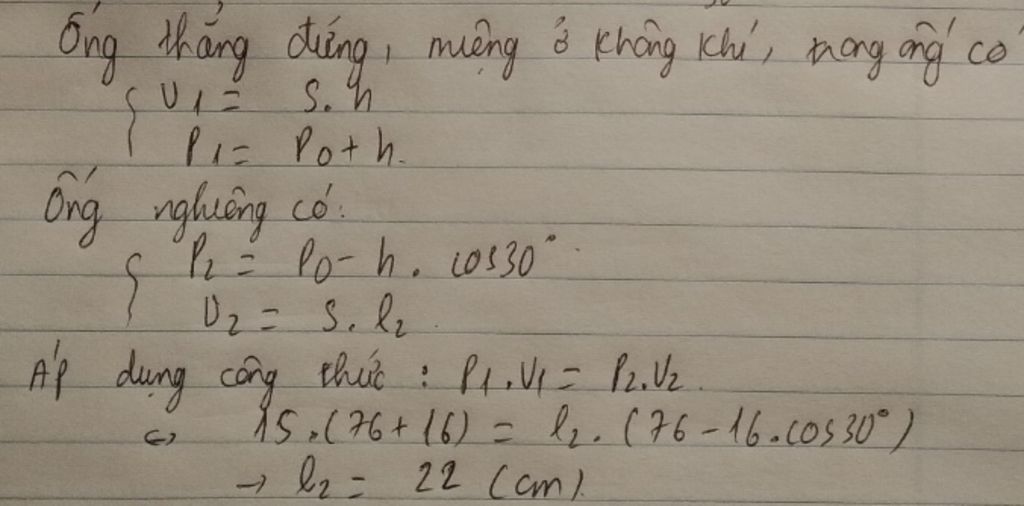 Ống thẳng đứng, miệng ở không khí, trong ống có
V1 = S.h
P1 = P0 + h.
Ống nghiêng có:
P2 = P0 - h . cos30°
V2 = S.l2.
Áp dụng công thức : P1.V1 = P2.V2.
<=> 15.(76+16) = l2.(76-16.cos30°)
→ l2 = 22 (cm).